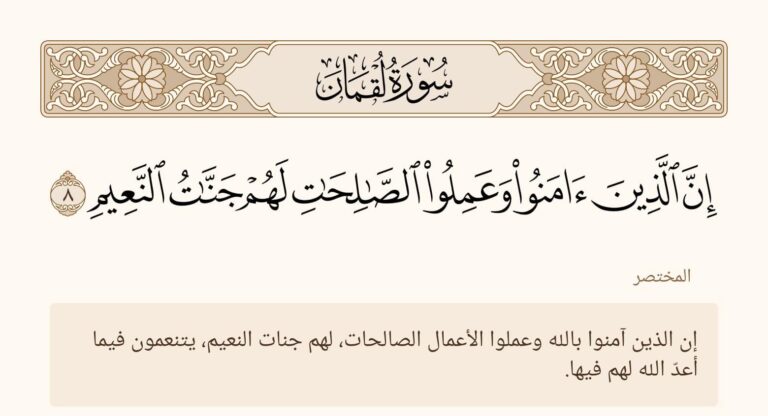 سُورَةُ لُقۡمَانَ
إِنَّ ٱلَّذِينَ ءَامَنُواْ وَعَمِلُواْ ٱلصَّٰلِحَٰتِ لَهُمۡ جَنَّٰتُ ٱلنَّعِيمِ ٨
المختصر
إن الذين آمنوا بالله وعملوا الأعمال الصالحات، لهم جنات النعيم، يتنعمون فيما
أعدّ الله لهم فيها.